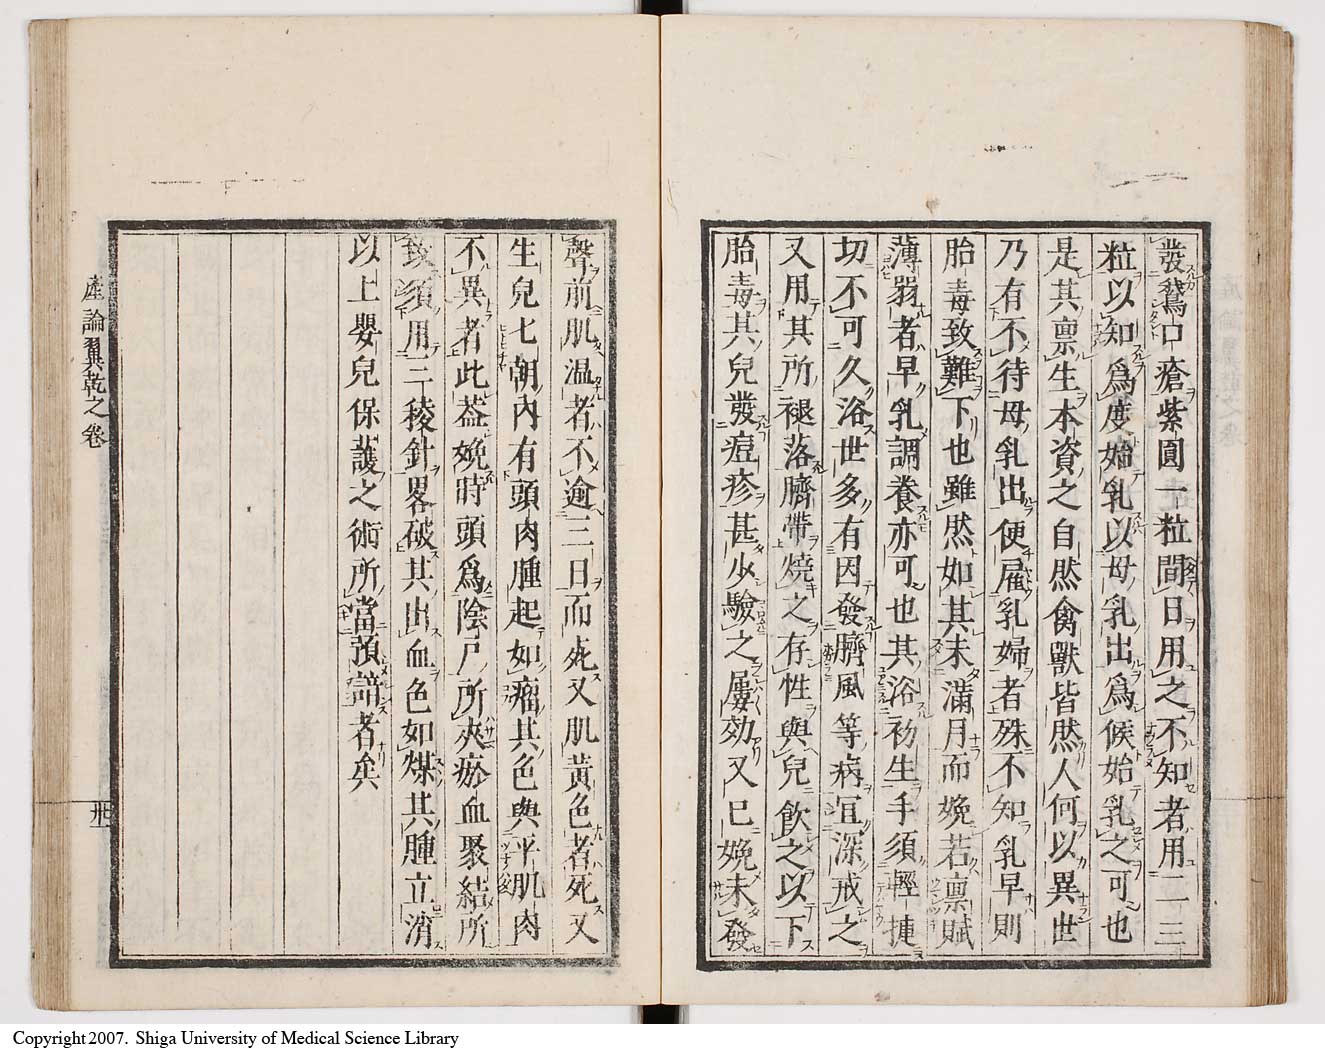 發鵞口瘡紫圓一粒間日用之不知者用二三
粒以知爲度始乳以母乳出爲候始乳之可也
是其禀生本資之自然禽獸皆然人何以異世
乃有不待母乳出便雇乳婦者殊不知乳早則
胎毒致難下也雖然如其未滿月而娩若禀賦
薄弱者早乳調養亦可也其浴初生手須輕揵
切不可久浴世多有因發臍風等病宜深戒之
又用其所褪落臍帶燒之存性與兒飲之以下
胎毒其兒發痘疹甚少驗之屢効又已娩未發
聲前肌温者不逾三日而死又肌黄色者死又
生兒七朝内有頭肉腫起如瘤其色與平肌肉
不異者此葢娩時頭爲陰戸所夾瘀血聚結所
致須用三稜針畧破其出血色如煤其腫立消
以上嬰兒保護之術所當預諳者矣
產論翼乾之卷
卌一
Copyright 2007. Shiga University of Medical Science Library